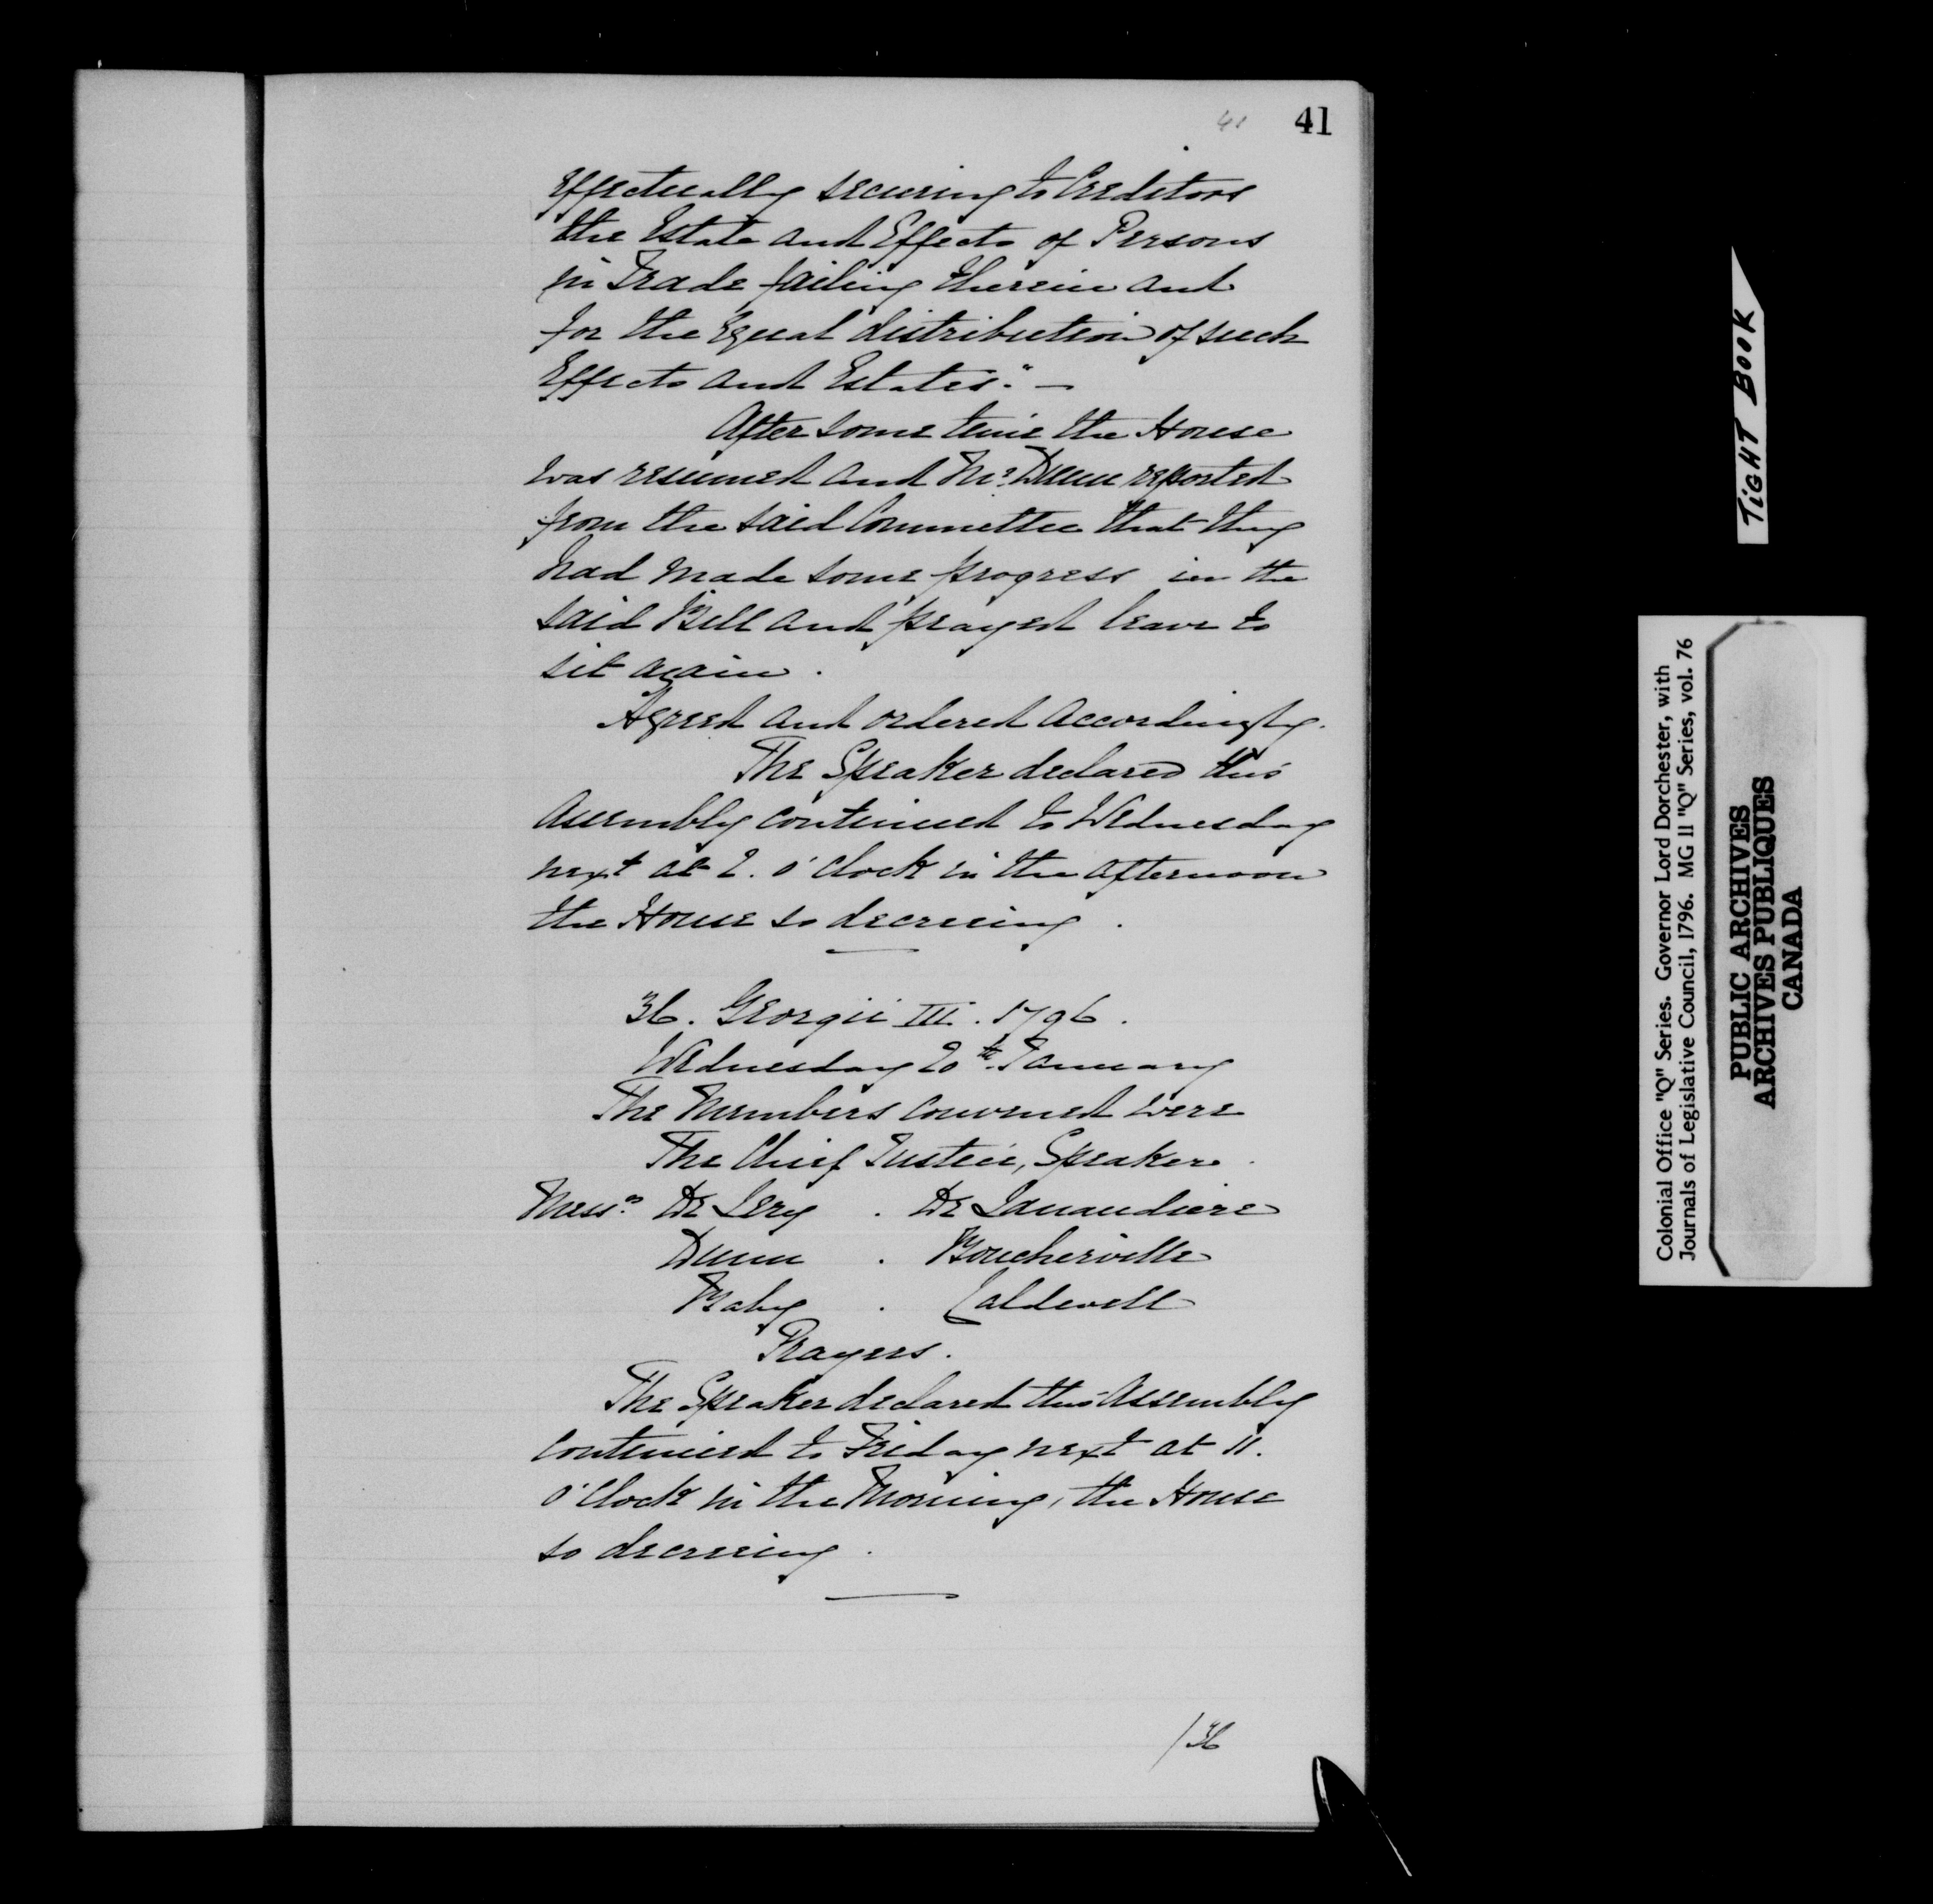 41 41
effectually securing to Creditors
the Estate and Effects of Persons
in Trade failing therein and
for the Equal distribution of such
Effects and Estates". —
After some time the House
was resumed and Mr. Dunn reported
from the said Committee that they
had made some progress in the
said Bill and prayed leave to
sit again.
Agreed and ordered accordingly.
The Speaker declared this
Assembly continued to Wednesday
next at 2. o'Clock in the afternoon
the House so decreeing.
36. Georgii III. 1796.
Wednesday 20th January
The Members convened were
The Chief Justice, Speaker.
Messrs. De Lery . De Lanaudiere
Dunn . Boucherville
Baby . Caldwell
Prayers.
The Speaker declared this Assembly
continued to Friday next at 11.
o'Clock in the Morning, the House
so decreeing.
/36
TIGHT BOOK
Colonial Office "Q" Series. Governor Lord Dorchester, with
Journals of Legislative Council, 1796. MG 11 "Q" Series, vol. 76
PUBLIC ARCHIVES
ARCHIVES PUBLIQUES
CANADA